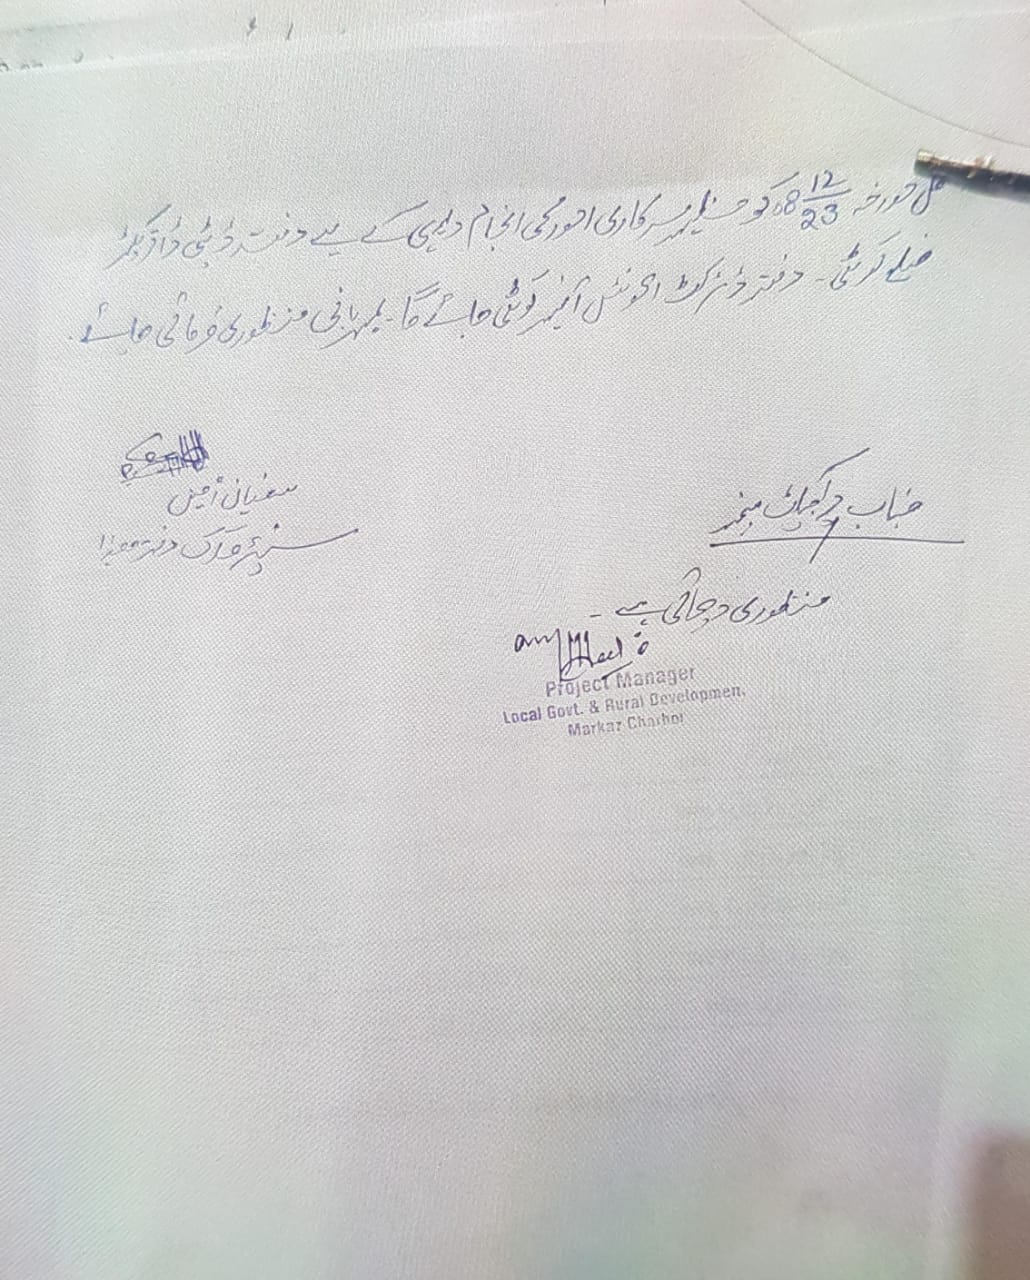 کل مورخہ 08 12/23 کو سرکاری امور کی انجام دہی کے لیے دفتر ڈپٹی ڈائریکٹر
ضلع کوٹلی۔ دفتر ڈسٹرکٹ اکاؤنٹس آفیسر کوٹلی جائے گا۔ بمہربانی منظوری فرمائی جائے۔
سفیان امین
دفتر ہذا
جناب پراجیکٹ منیجر
منظوری دیجاتی ہے۔
Project Manager
Local Govt. & Rural Developmen
Markaz Charhoi